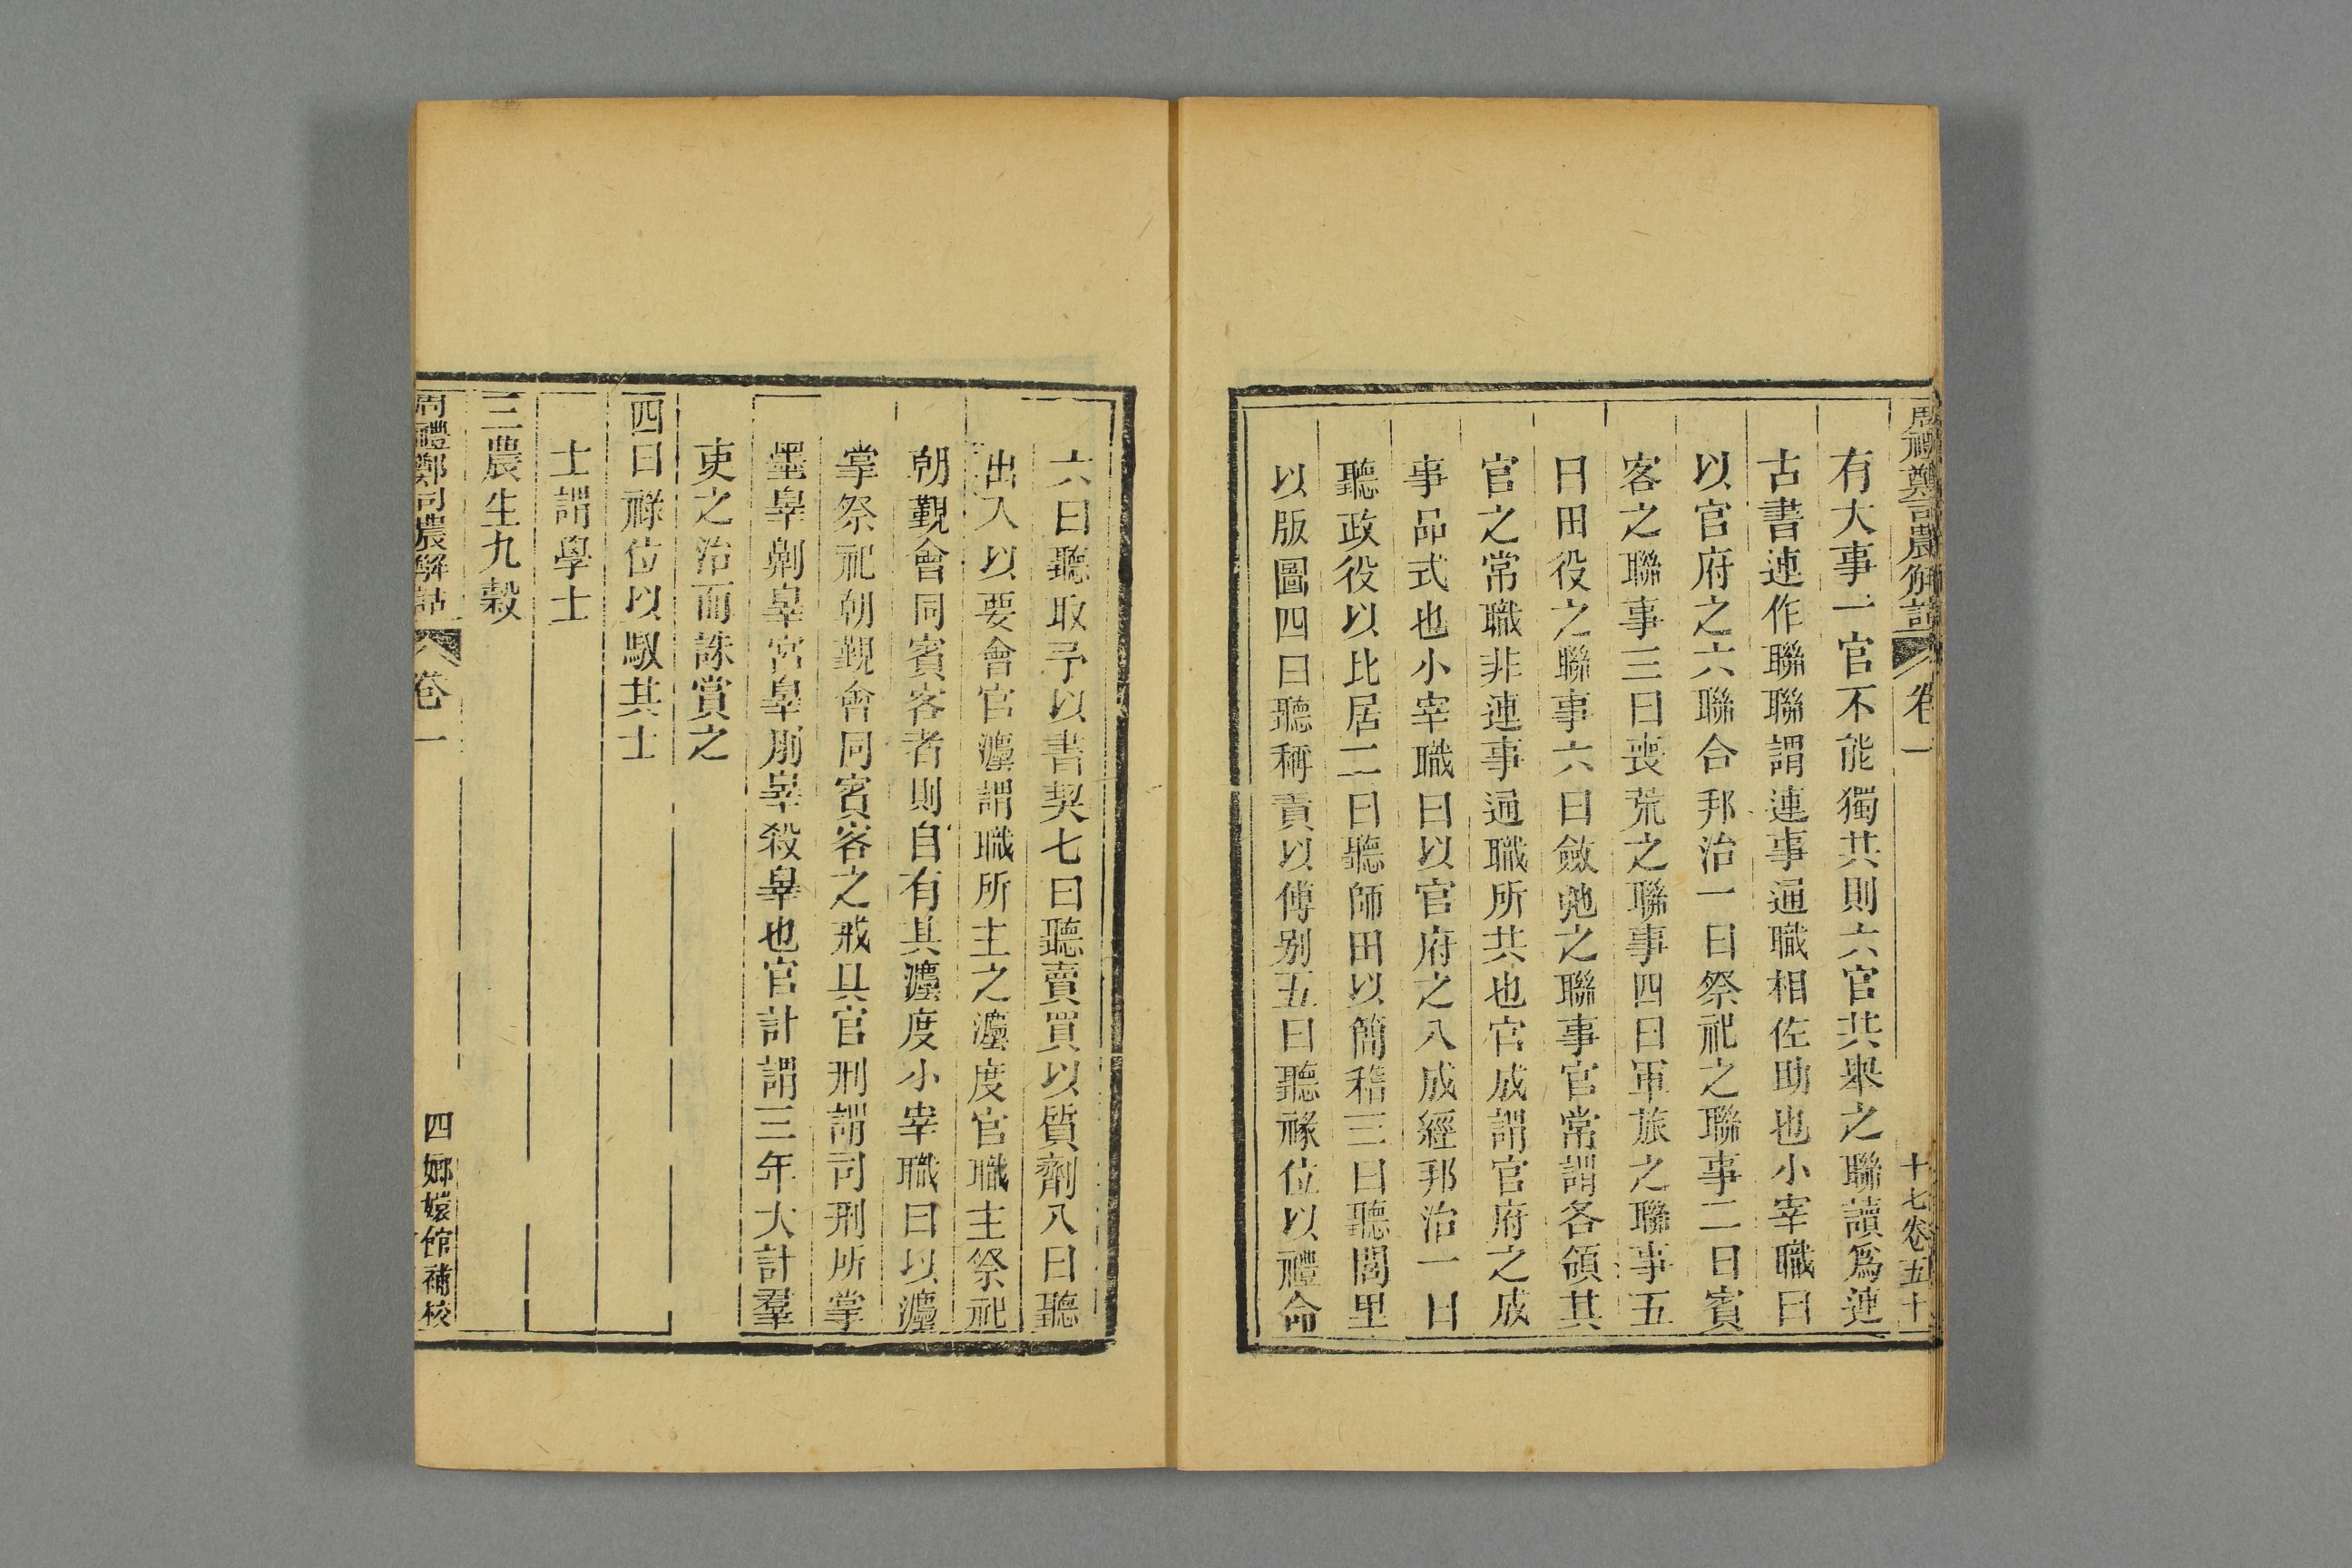 周禮鄭司農解詁 卷一 十七卷五十
有大事一官不能獨共則六官共舉之聯讀爲連
古書連作聯聯謂連事通職相佐助也小宰職曰
以官府之六聯合邦治一曰祭祀之聯事二曰賓
客之聯事三曰喪荒之聯事四曰軍旅之聯事五
曰田役之聯事六曰斂弛之聯事官常謂各領其
官之常職非連事通職所共也官成謂官府之成
事品式也小宰職曰以官府之八成經邦治一曰
聽政役以比居二曰聽師田以簡稽三曰聽閭里
以版圖四曰聽稱責以傅别五曰聽祿位以禮命
六曰聽取予以書契七曰聽賣買以質劑八曰聽
出入以要會官灋謂職所主之灋度官職主祭祀
朝覲會同賓客者則自有其灋度小宰職曰以灋
掌祭祀朝覲會同賓客之戒具官刑謂司刑所掌
墨辠劓辠宮辠刖辠殺辠也官計謂三年大計羣
吏之治而誅賞之
四曰祿位以馭其士
士謂學士
三農生九穀
周禮鄭司農解詁 卷一 四 嫏嬛館補校